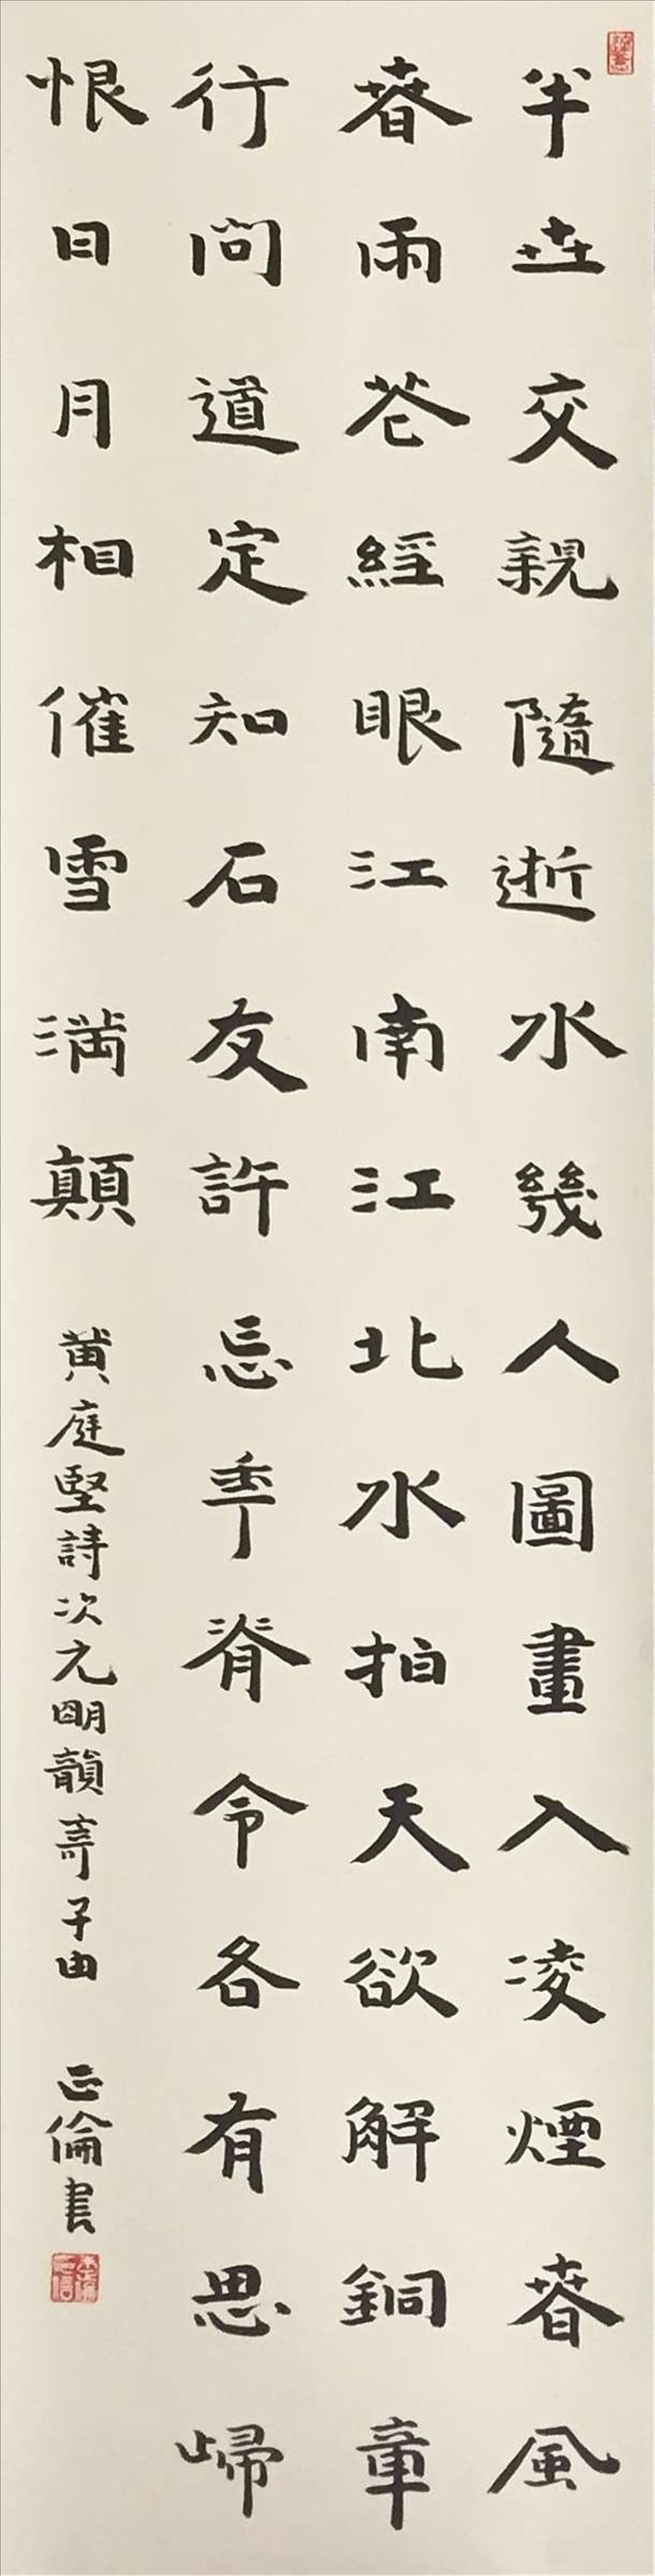 半世交親隨逝水幾人圖畫入凌煙春風
春雨花經眼江南江北水拍天欲解銅章
行問道定知石友許忘年脊令各有思歸
恨日月相催雪滿顛
黃庭堅詩次元明韻寄子由
正倫書